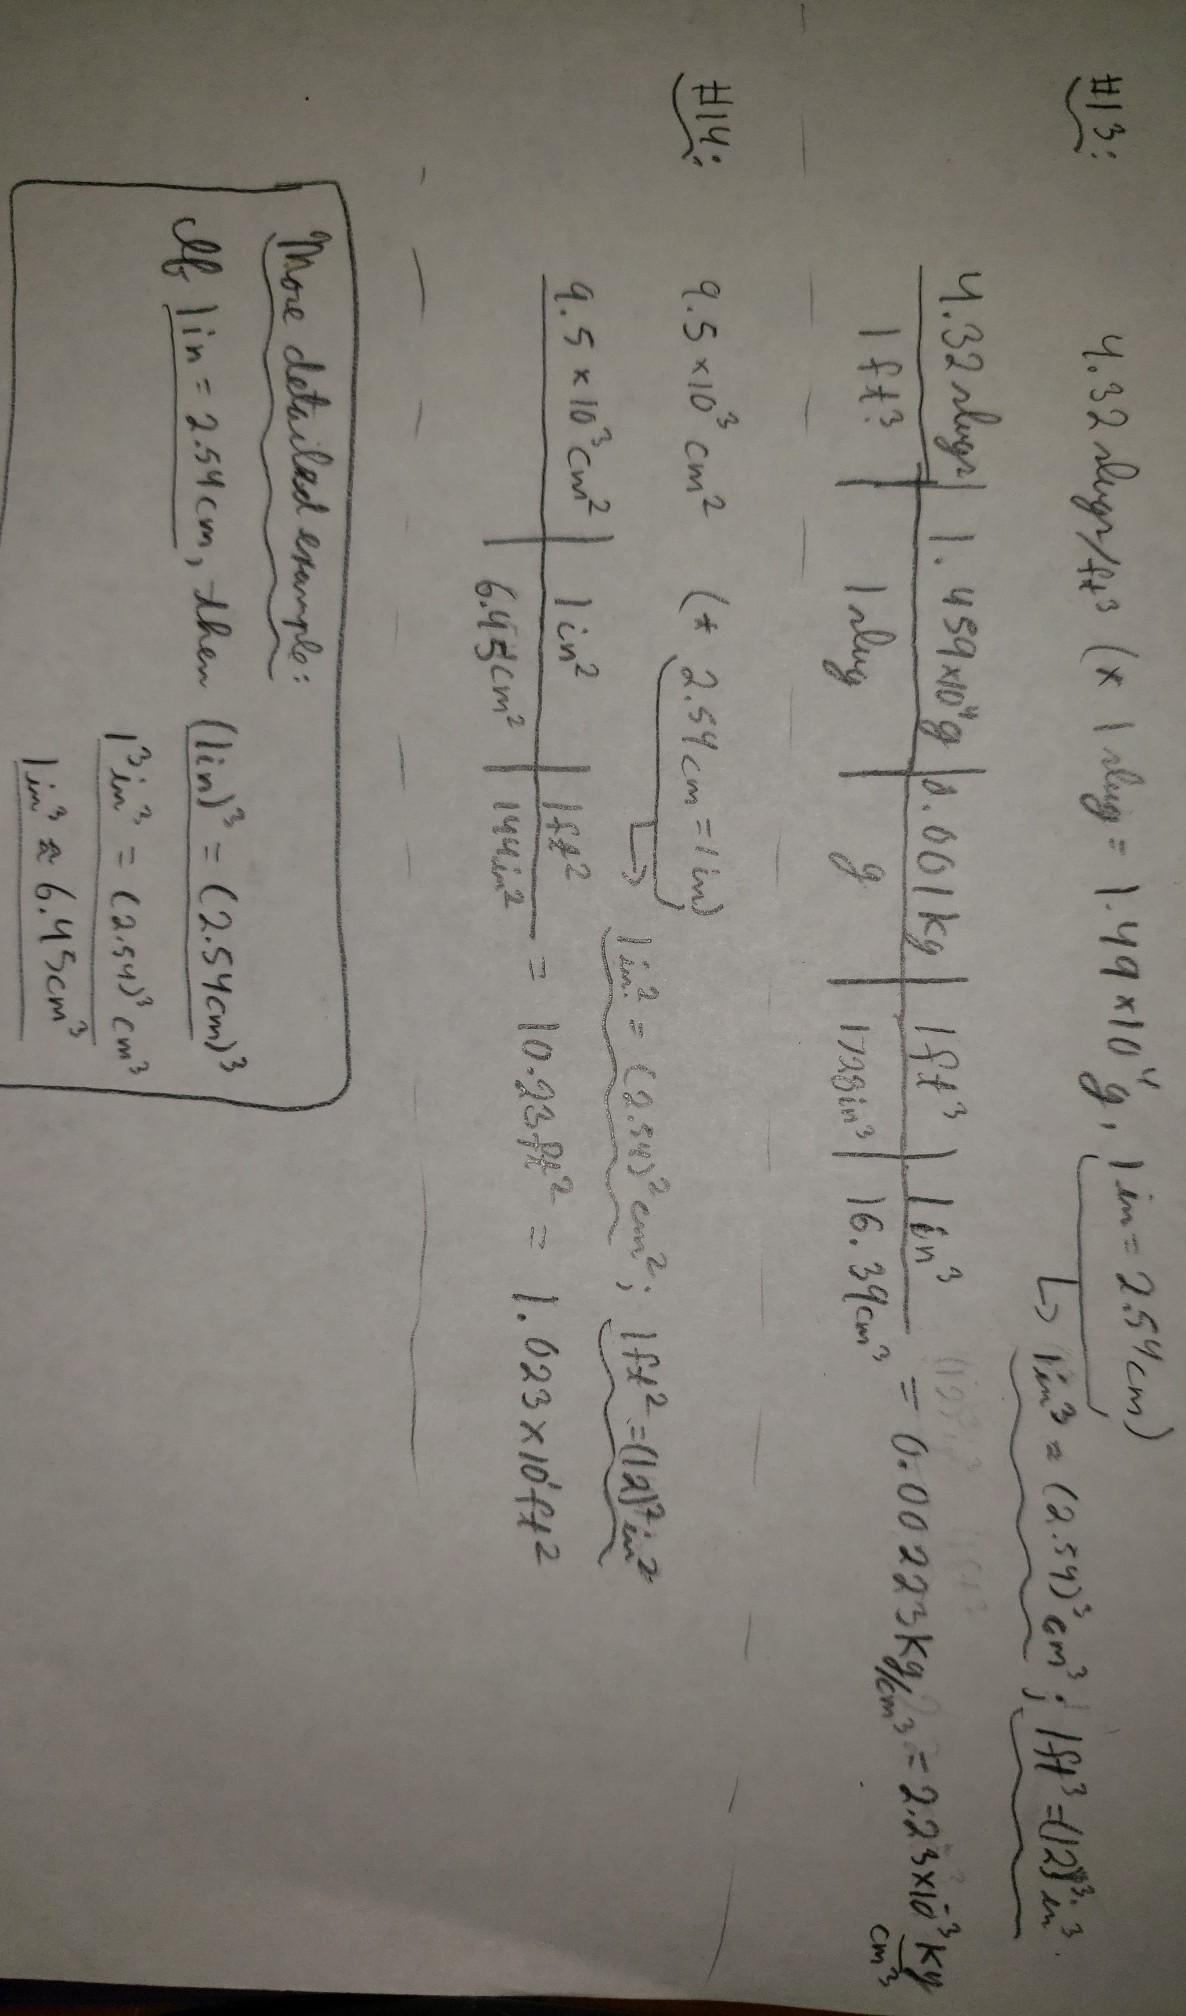 #13: 4.32 slugs/ft³ (* 1 slug = 1.49 x 10⁴ g, 1 in = 2.54 cm)
↳ 1in³ ≈ (2.54)³ cm³; 1ft³ = (12)³ in³.
4.32 slugs | 1.459x10⁴g | 0.001 kg | 1ft³ | 1in³
1 ft³ | 1 slug | g | 1728in³ | 16.39cm³ = 0.00223 kg/cm³ = 2.23x10⁻³ kg/cm³
#14: 9.5 x 10³ cm² (* 2.54 cm = 1 in)
↳ 1in² = (2.54)² cm²; 1ft² = (12)² in²
9.5 x 10³ cm² | 1in² | 1ft²
6.45cm² | 144in² = 10.23 ft² = 1.023 x 10¹ ft²
More detailed example:
If 1in = 2.54cm, then (1in)³ = (2.54cm)³
1³in³ = (2.54)³ cm³
1in³ ≈ 6.45cm³